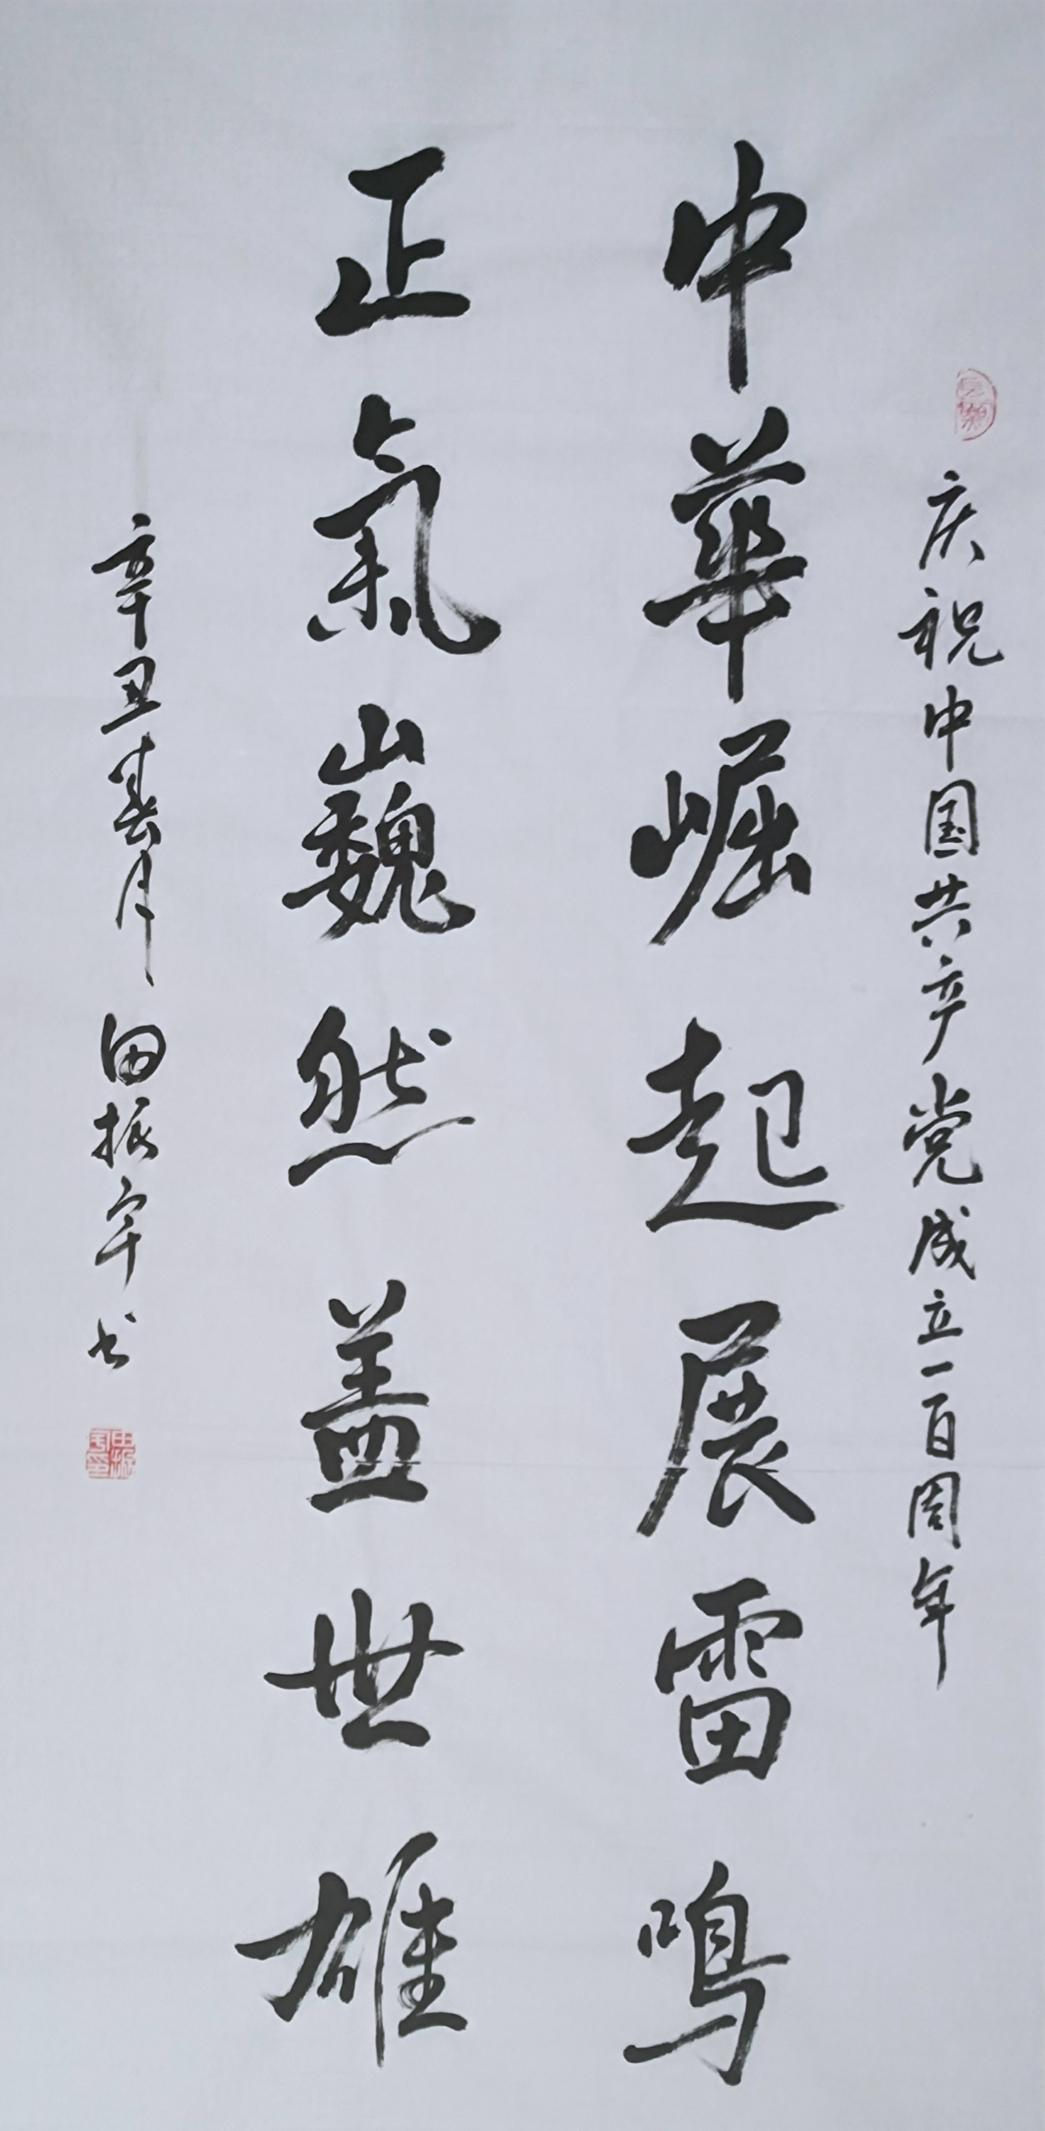 庆祝中国共产党成立一百周年
中華崛起展雷鸣
正氣巍然盖世雄
辛丑春月田振宇书